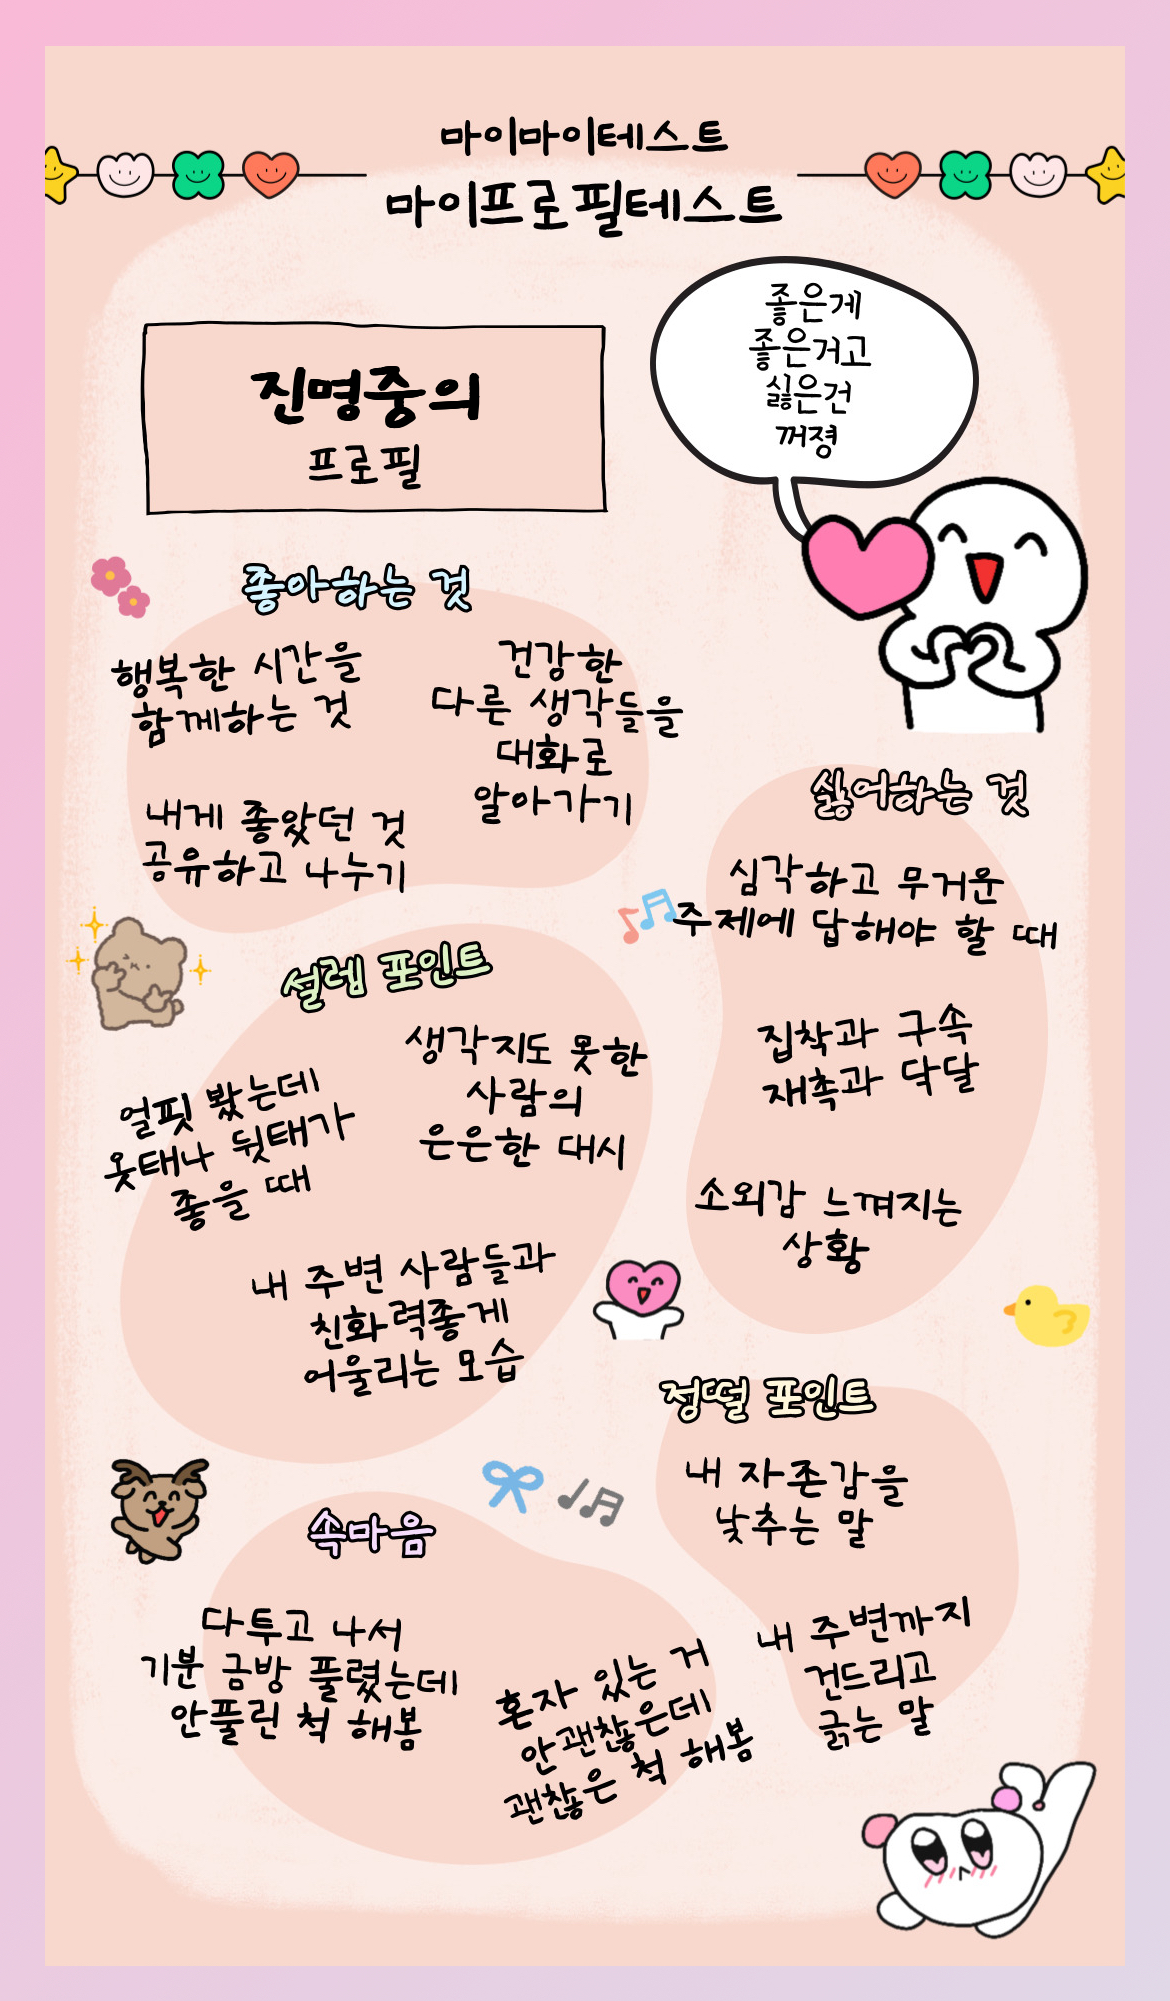 마이마이테스트
마이프로필테스트
진명중의
프로필
좋은게
좋은거고
싫은건
꺼졍
좋아하는 것
행복한 시간을
함께하는 것
건강한
다른 생각들을
대화로
알아가기
내게 좋았던 것
공유하고 나누기
싫어하는 것
심각하고 무거운
주제에 답해야 할 때
집착과 구속
재촉과 닥달
소외감 느껴지는
상황
설렘 포인트
생각지도 못한
사람의
은은한 대시
얼핏 봤는데
옷태나 뒷태가
좋을 때
내 주변 사람들과
친화력좋게
어울리는 모습
정떨 포인트
내 자존감을
낮추는 말
내 주변까지
건드리고
긁는 말
속마음
다투고 나서
기분 금방 풀렸는데
안풀린 척 해봄
혼자 있는 거
안괜찮은데
괜찮은 척 해봄